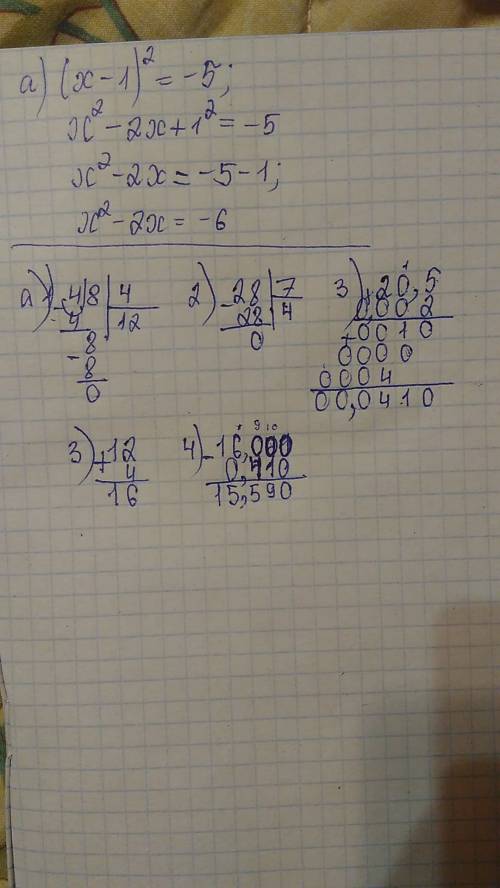 а) (x-1)² = -5;
x² - 2x + 1² = -5
x² - 2x = -5 - 1;
x² - 2x = -6
а) 1) -48 | 4
4 | 12
-8
8
0
2) -28 | 7
28 | 4
0
3) 20,5
0,002
+0010
0000
0004
00,0410
3) +12
4
16
4) -16,000
0,410
15,590